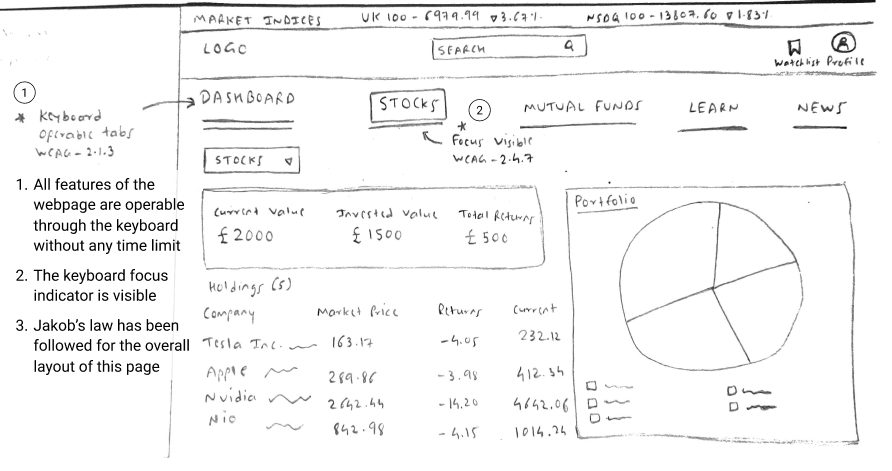 MARKET INDICES UK 100 - 6979.99 ▽3.67% NSDQ 100 - 13807.60 ▽1.83%
LOGO SEARCH
Watchlist Profile
1
* Keyboard operable tabs WCAG - 2.1.3
DASHBOARD STOCKS 2 MUTUAL FUNDS LEARN NEWS
* Focus Visible
WCAG - 2.4.7
STOCKS ▽
1. All features of the
webpage are operable
through the keyboard
without any time limit
2. The keyboard focus
indicator is visible
3. Jakob's law has been
followed for the overall
layout of this page
Current Value Invested Value Total Returns
£2000 £1500 £500
Portfolio
Holdings (5)
Company Market Price Returns Current
Tesla Inc. 163.17 -4.05 232.12
Apple 289.86 -3.98 412.34
Nvidia 2642.44 -14.20 4642.06
Nio 842.98 -4.15 1014.24